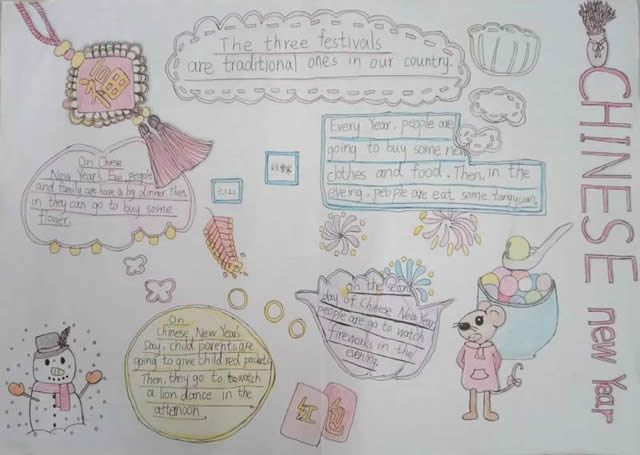 The three festivals
are traditional ones in our country.
福
CHINESE new Year
Every Year, people are
going to buy some new
clothes and food. Then, in the
eveing, people are eat some tangyuan.
On Chinese
New Year's Eve, people
and family are have a big dinner. Then
in they can go to buy some
flower.
On
Chinese New Year's
Day, child parents are
going to give child red pockets
Then, they go to watch
a lion dance in the
afternoon
On the second
day of Chinese New Year
people are go to watch
fireworks in the
evening.
红包